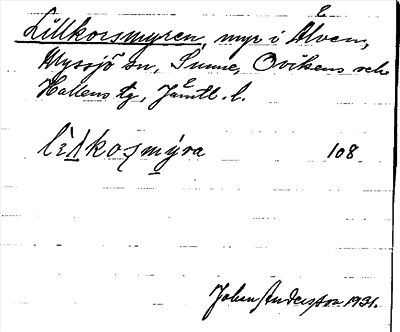 Lillkorsmyren, myr i Älven,
Myssjö sn, Sunne, Ovikens och
Hallens tg, Jämtl. l.
lìlkosmýra 108
John Andersson 1931.